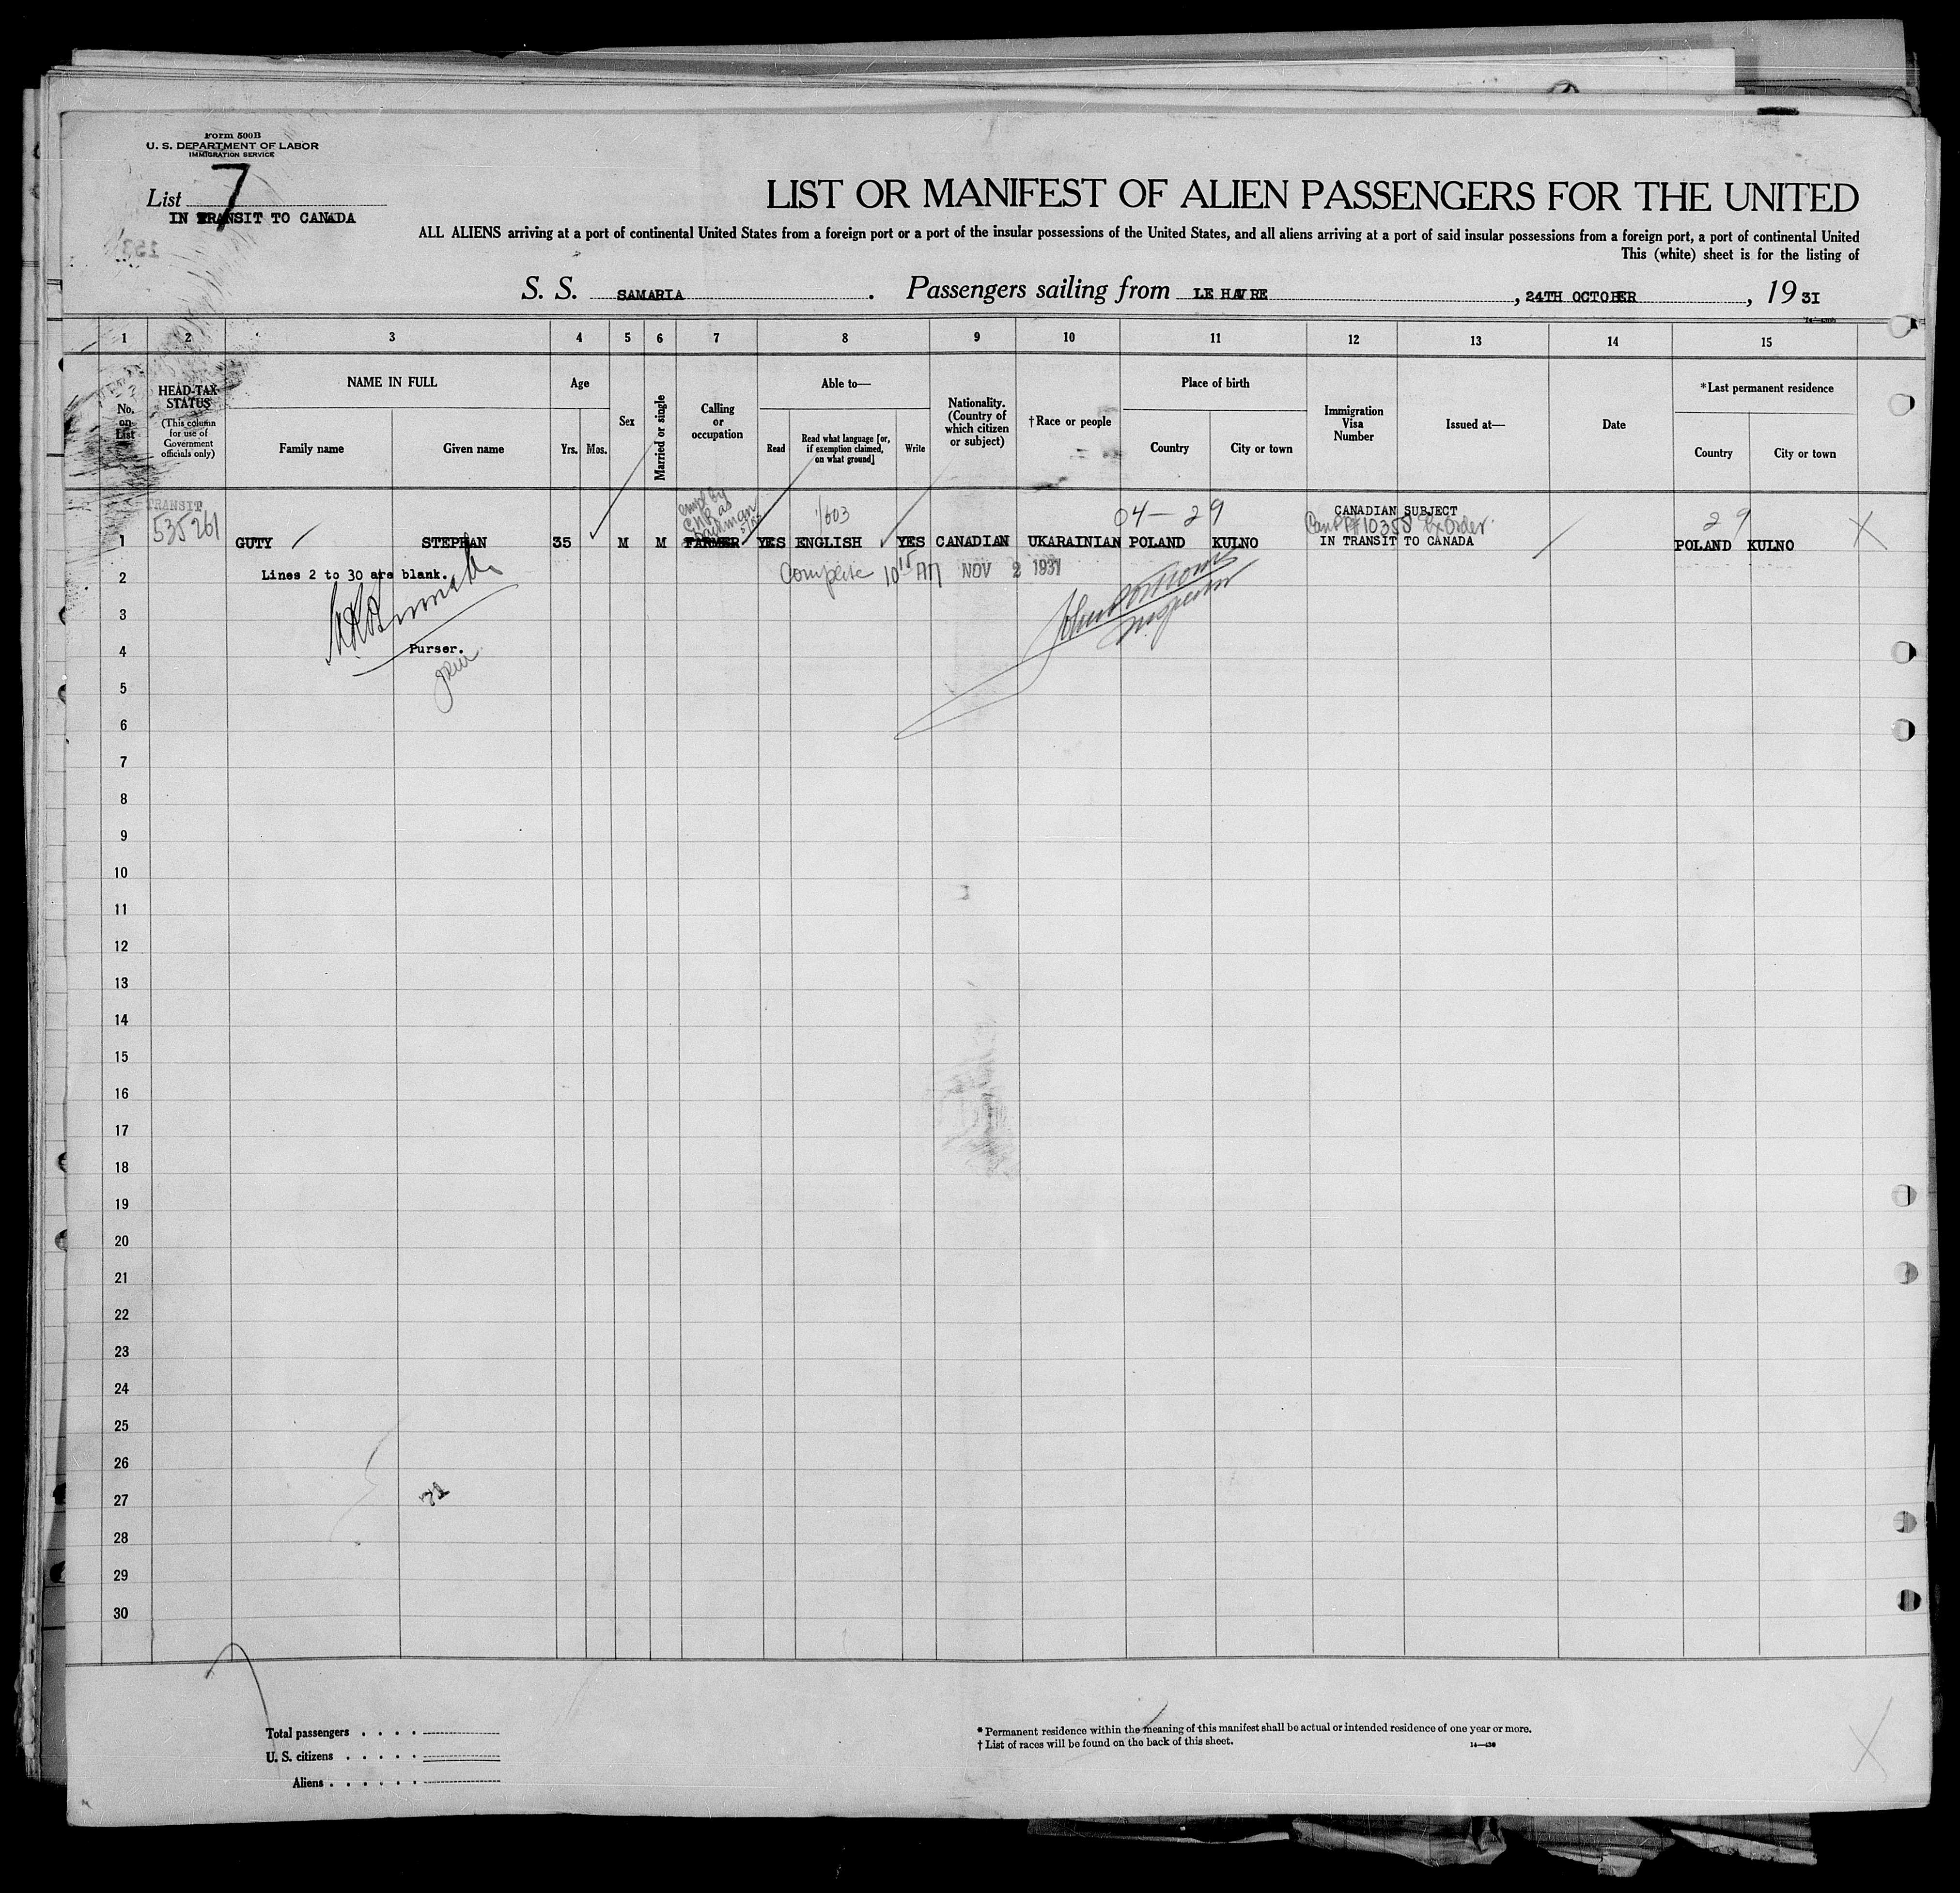 Form 500B
U. S. DEPARTMENT OF LABOR
IMMIGRATION SERVICE
List 7
IN TRANSIT TO CANADA
LIST OR MANIFEST OF ALIEN PASSENGERS FOR THE UNITED
ALL ALIENS arriving at a port of continental United States from a foreign port or a port of the insular possessions of the United States, and all aliens arriving at a port of said insular possessions from a foreign port, a port of continental United
This (white) sheet is for the listing of
S. S. SAMARIA. Passengers sailing from LE HAVRE, 24TH OCTOBER, 19 3I
1 2 3 4 5 6 7 8 9 10 11 12 13 14 15
No. on List
HEAD-TAX STATUS
(This column for use of Government officials only)
NAME IN FULL
Family name
Given name
Age
Yrs.
Mos.
Sex
Married or single
Calling or occupation
Able to—
Read
Read what language [or, if exemption claimed, on what ground]
Write
Nationality. (Country of which citizen or subject)
†Race or people
Place of birth
Country
City or town
Immigration Visa Number
Issued at—
Date
*Last permanent residence
Country
City or town
TRANSIT
535261
empl by
CNR as
1/603
04 — 29
CANADIAN SUBJECT
#10358
29
1 GUTY STEPHAN 35 M M FARMER YES ENGLISH YES CANADIAN UKARAINIAN POLAND KULNO IN TRANSIT TO CANADA POLAND KULNO
2 Lines 2 to 30 are blank. Complete 10 15 AM NOV 2 1931
3
Inspector
4 Purser.
5
6
7
8
9
10
11
12
13
14
15
16
17
18
19
20
21
22
23
24
25
26
27
28
29
30
Total passengers . . . .
U. S. citizens . . . . .
Aliens . . . . . .
* Permanent residence within the meaning of this manifest shall be actual or intended residence of one year or more.
† List of races will be found on the back of this sheet.